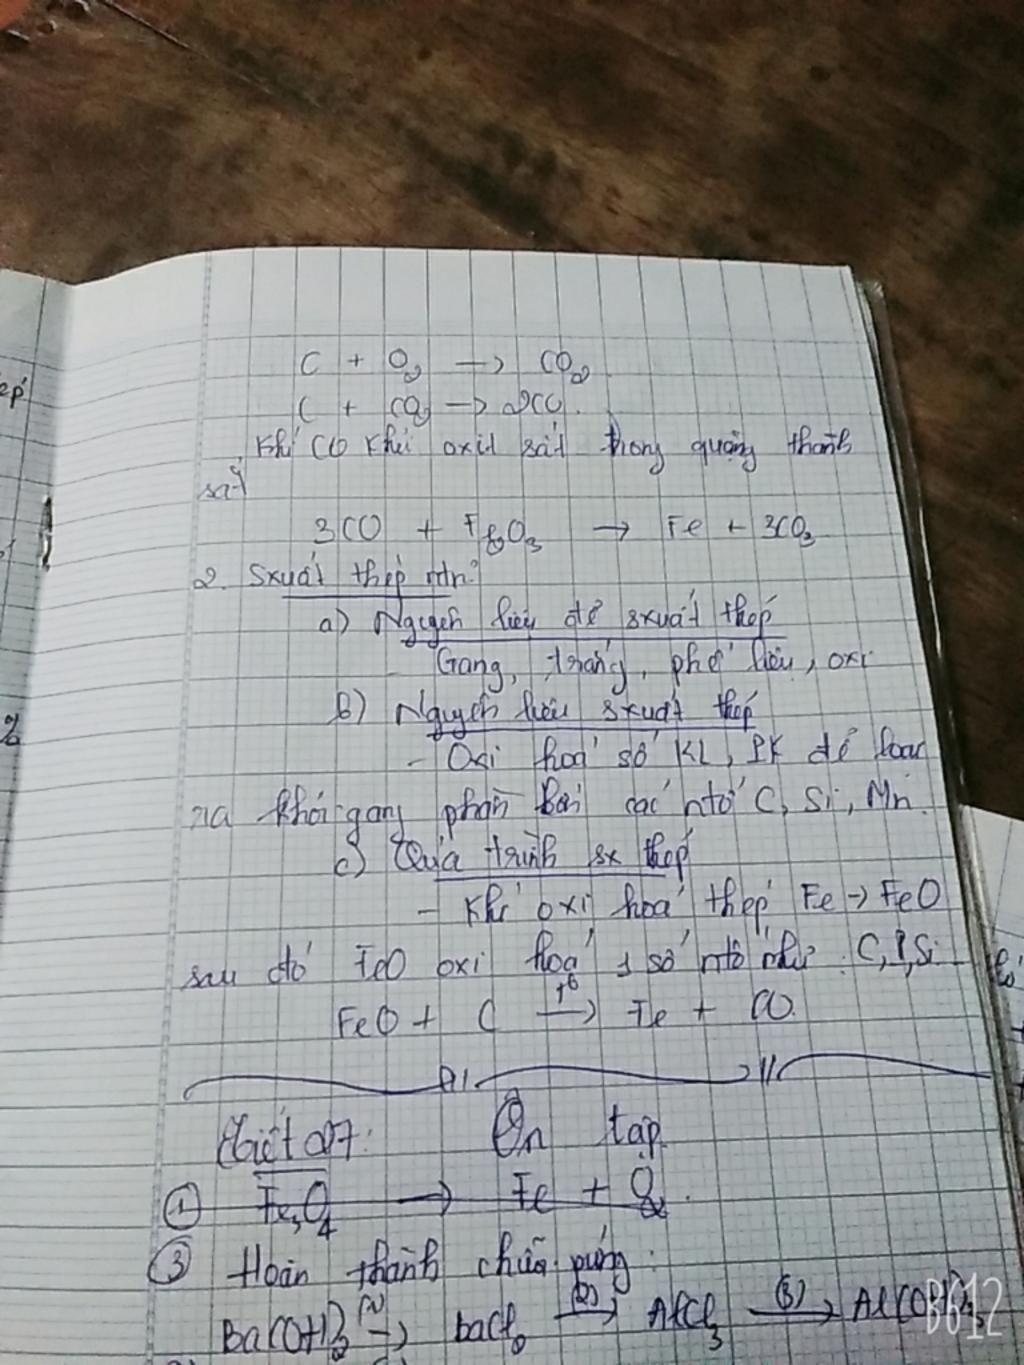 C + O₂ → CO₂
C + CO₂ → 2CO.
Khí CO khử oxit sắt trong quặng thành
sắt
3CO + Fe₂O₃ → Fe + 3CO₂
2. Sxuất thép ntn?
a) Nguyên liệu để sxuất thép
Gang, trắng, phế liệu, oxi
b) Nguyên liệu sxuất thép
- Oxi hoá số KL, PK để loại
ra khỏi gang phần lớn các ntố C, Si, Mn
c) Quá trình sx thép
- Khí oxi hoá thép Fe → FeO
sau đó FeO oxi hoá 1 số ntố như: C, P, Si
FeO + C →(t°) Fe + CO
Tiết 27: Ôn tập
① Fe₃O₄ → Fe + O₂.
③ Hoàn thành chuỗi pứng:
Ba(OH)₂ →(1) BaCl₂ →(2) AlCl₃ →(3) Al(OH)₃
B612